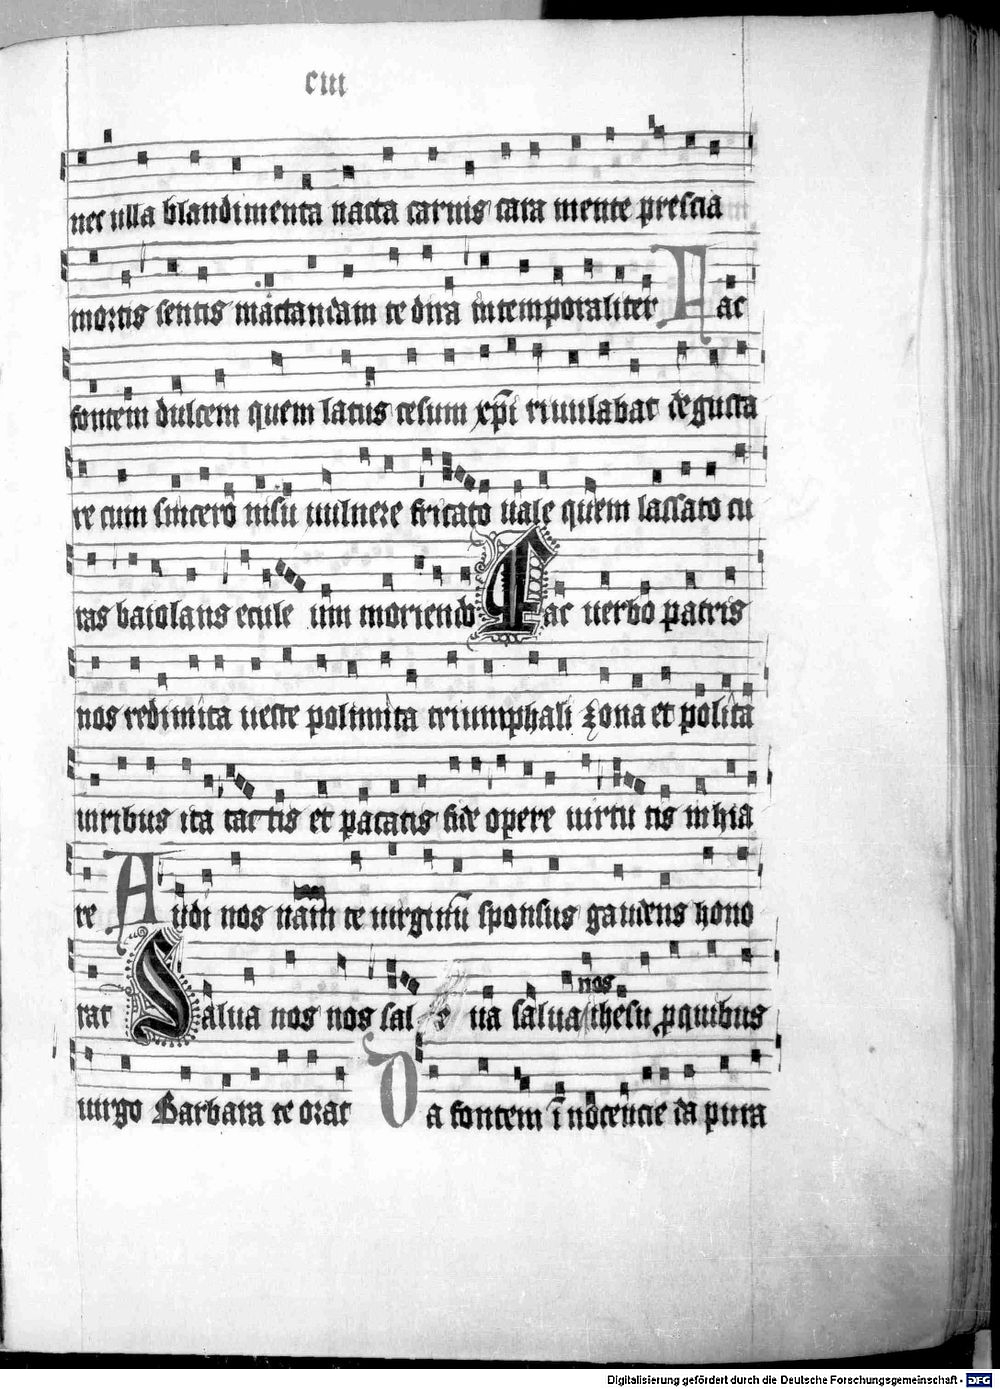 ciii
nec ulla blandimenta nacta carnis cara mente prescia
mortis sentis mactandam te dira intemporaliter Hac
fontem dulcem quem latus tesum xp̄i riuulabat degusta
re cum sincero nisu uulnere fricato uale quem lassato cu
ras baiolans ecule um moriendo Fac uerbo patris
nos redimita ueste polimita triumphali zona et polita
uiribus ita tactis et pacatis fide opere uirtu tis inhia
re Audi nos nam te uirginū sponsus gaudens hono
rat Salua nos nos sal ua salua ihesu nos ꝓ quibus
uirgo Barbara te orat Da fontem īnocēncie da pura
Digitalisierung gefördert durch die Deutsche Forschungsgemeinschaft - DFG